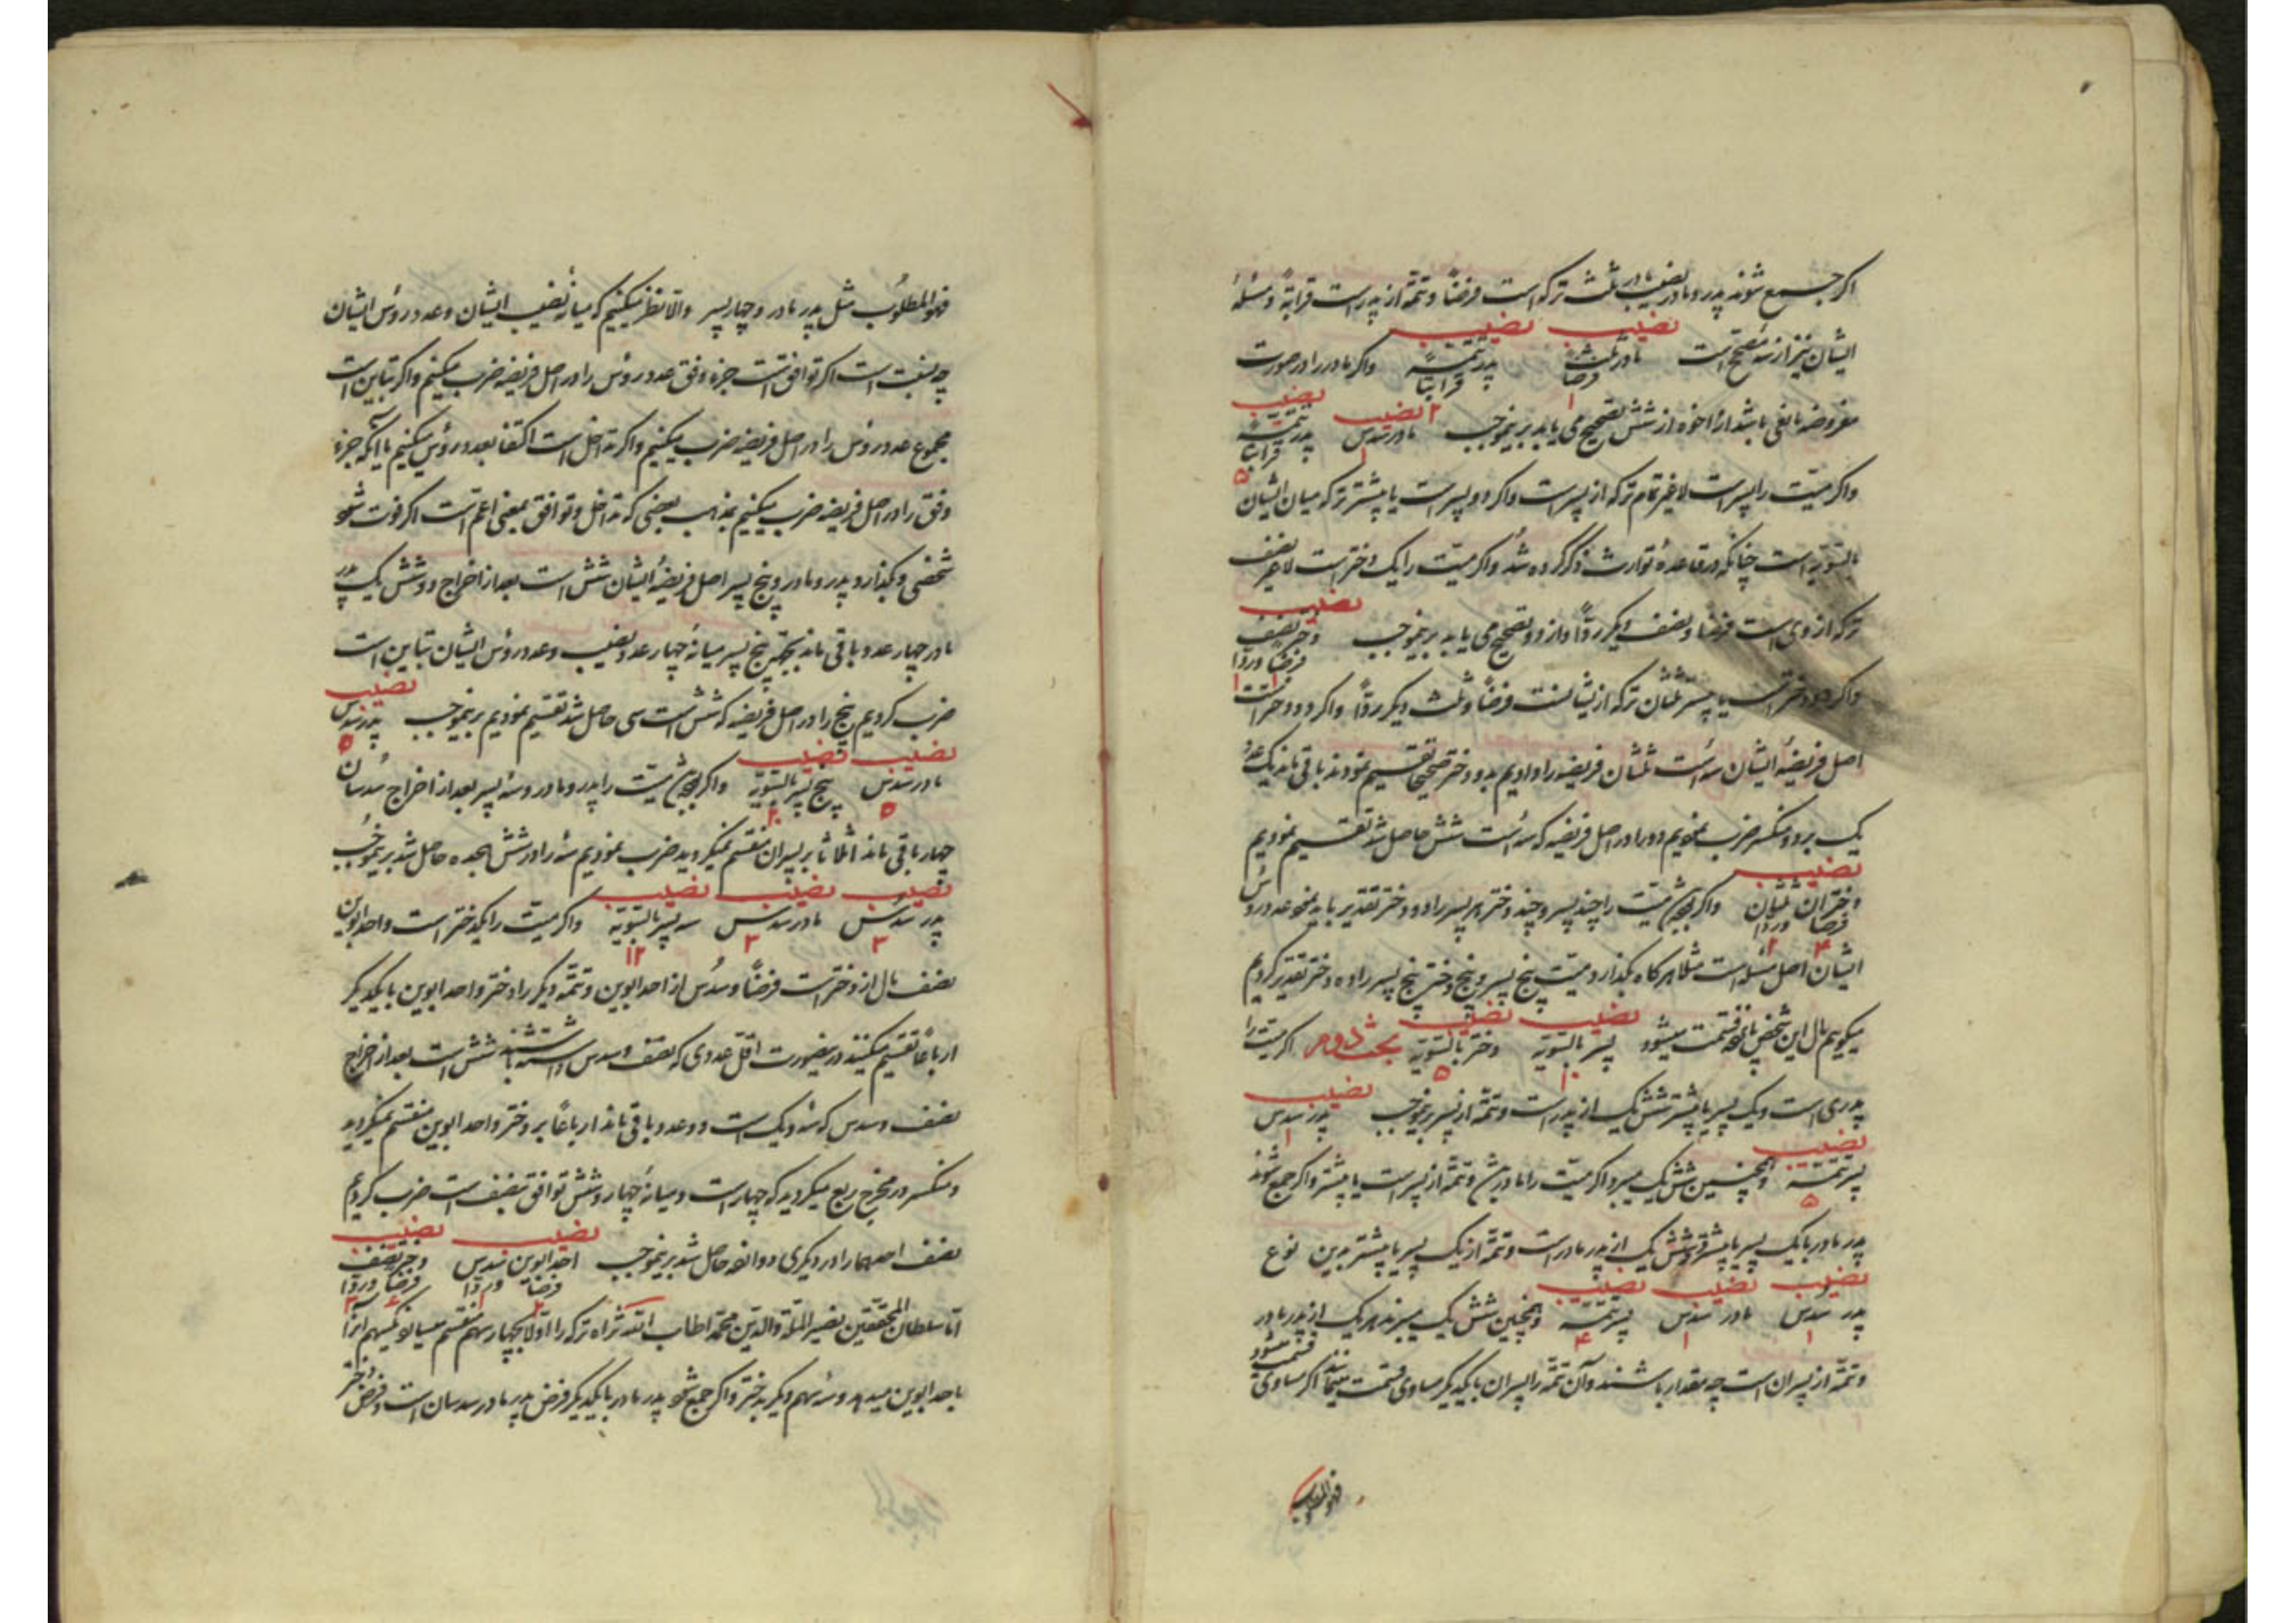 اکر جمع شوند پدر و مادر نصیب مادر ثلث ترکه است فرضاً و تتمّه از پدر است قرابةً و مسئلهٔ
ایشان نیز از سه مصحح است مادر ثلث فرضاً پدر تتمّه قرابتاً واکر مادر را در صورت
نصیب نصیب
۱ ۲
مفروضه مانعی باشد از اخوه از شش تصحیح می یابد برینموجب مادر سدس پدر تتمّه قرابتاً
نصیب نصیب
۱ ۵
واکر میّت را پسر است لاغیر تمام ترکه از پسر است واکر دو پسر است یا بیشتر ترکه میان ایشان
بالسّویّه است چنانکه در قاعدهٔ توارث ذکر کرده شد واکر میّت را یک دختر است لاغیر نصف
ترکه از وی است فرضاً و نصف دیکر ردّاً و از دو تصحیح می یابد برینموجب دختر نصف فرضاً و ردّاً
نصیب
۱ ۱
واکر دو دختر است یا بیشتر ثلثان ترکه از ایشانست فرضاً و ثلث دیکر ردّاً واکر دو دختر است
اصل فریضهٔ ایشان سه است ثلثان فریضه را دادیم بدو دختر صحیحاً تقسیم نمودند باقی ماند یک عدد
یک بر دو منکسر ضرب نمودیم دو را در اصل فریضه که سه است شش حاصل شد تقسیم نمودیم
نصیب
دختران ثلثان فرضاً و ردّاً واکر میّت را چند پسر و چند دختر هر پسر را دو دختر تقدیر باید نمود عدد رؤس
۴ ۲
ایشان اصل مسئله است مثلا هرکاه بکذارد میّت پنج پسر و پنج دختر پنج پسر را ده دختر تقدیر کردیم
نصیب نصیب
میکویم مال این شخص پانزده قسمت میشود پسر بالسّویّه دختر بالسّویّه بحث دوم اکر میّت را
۱۰ ۵
پدری است و یک پسر یا بیشتر شش یک از پدر است و تتمّه از پسر برینموجب پدر سدس
نصیب
۱
نصیب
پسر تتمّه و همچنین شش یک میبرد اکر میّت را مادر بیش و تتمّه از پسر است یا بیشتر واکر جمع شوند
۵
پدر مادر با یک پسر یا بیشتر دو شش یک از پدر مادر است و تتمّه از یک پسر یا بیشتر بدین نوع
نصیب نصیب نصیب
پدر سدس مادر سدس پسر تتمّه و همچنین شش یک میبرند هر یک از پدر مادر
۱ ۱ ۴
و تتمّه از پسران است چه مقدار باشند و آن تتمّه را پسران با یکدیکر مساوی قسمت مینمایند اکر مساوی قسمت میشود
فهو المطلوب
فهو المطلوب مثل پدر مادر و چهار پسر والّا نظر میکنیم که میانهٔ نصیب ایشان و عدد رؤس ایشان
چه نسبت است اکر توافق است جزء وفق عدد رؤس را در اصل فریضه ضرب میکنیم واکر تباین است
مجموع عدد رؤس را در اصل فریضه ضرب میکنیم واکر تداخل است اکتفا بعدد رؤس میکنیم یا آنکه جزء
وفق را در اصل فریضه ضرب میکنیم بمذهب بعضی که تداخل و توافق بمعنی اعم است اکر فوت شود
شخصی و بکذارد پدر و مادر و پنج پسر اصل فریضهٔ ایشان شش است بعد از اخراج دو شش یک پدر
مادر چهار عدد باقی ماند بجهة پنج پسر میانهٔ چهار عدد نصیب و عدد رؤس ایشان تباین است
ضرب کردیم پنج را در اصل فریضه که شش است سی حاصل شد تقسیم نمودیم برینموجب پدر سدس
نصیب
۵
نصیب نصیب
مادر سدس پنج پسر بالسّویّه واکر میّت را پدر و مادر و سه پسر بعد از اخراج سدسان
۵ ۲۰
چهار باقی ماند اثلاثا بر پسران منقسم نمیکردید ضرب نمودیم سه را در شش هجده حاصل شد برینموجب
نصیب نصیب نصیب
پدر سدس مادر سدس سه پسر بالسّویّه واکر میّت را یکدختر است و احد ابوین
۳ ۳ ۱۲
نصف مال از دختر است فرضاً و سدس از احد ابوین و تتمّه دیکر را دختر و احد ابوین با یکدیکر
ارباعاً تقسیم میکنند درینصورت اقلّ عددی که نصف و سدس داشته باشند شش است بعد از اخراج
نصف و سدس که سه و یک است دو عدد باقی ماند ارباعاً بر دختر و احد ابوین منقسم نمیکردید
و منکسر در مخرج ربع میکردید که چهار است و میانهٔ چهار و شش توافق بنصف است ضرب کردیم
نصف احدهما را در دیکری دوازده حاصل شد برینموجب احد ابوین سدس فرضاً و ردّاً دختر نصف فرضاً و ردّاً
نصیب نصیب
۲ ۱ ۶ ۳
امّا سلطان المحققین نصیر الملّة والدّین محمّد اطاب اللّه ثراه ترکه را اوّلا بچهار سهم منقسم میسازد یکسهم آنرا
باحد ابوین میدهد و سه سهم دیکر بدختر واکر جمع شود پدر مادر با یکدیکر فرض پدر مادر سدسان است و فرض دختر